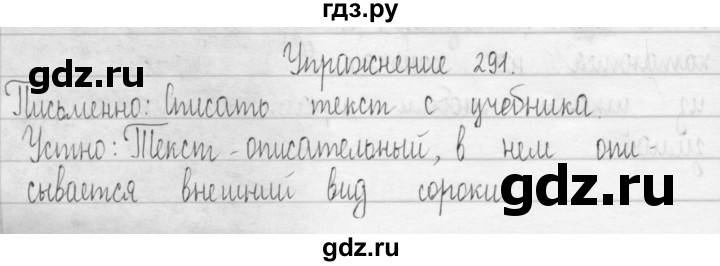 гдз.ру
Упражнение 291.
gdz.ru
gdz.ru
Письменно: Списать текст с учебника.
Устно: Текст - описательный, в нем опи-
сывается внешний вид сороки
gdz.ru
gdz.ru